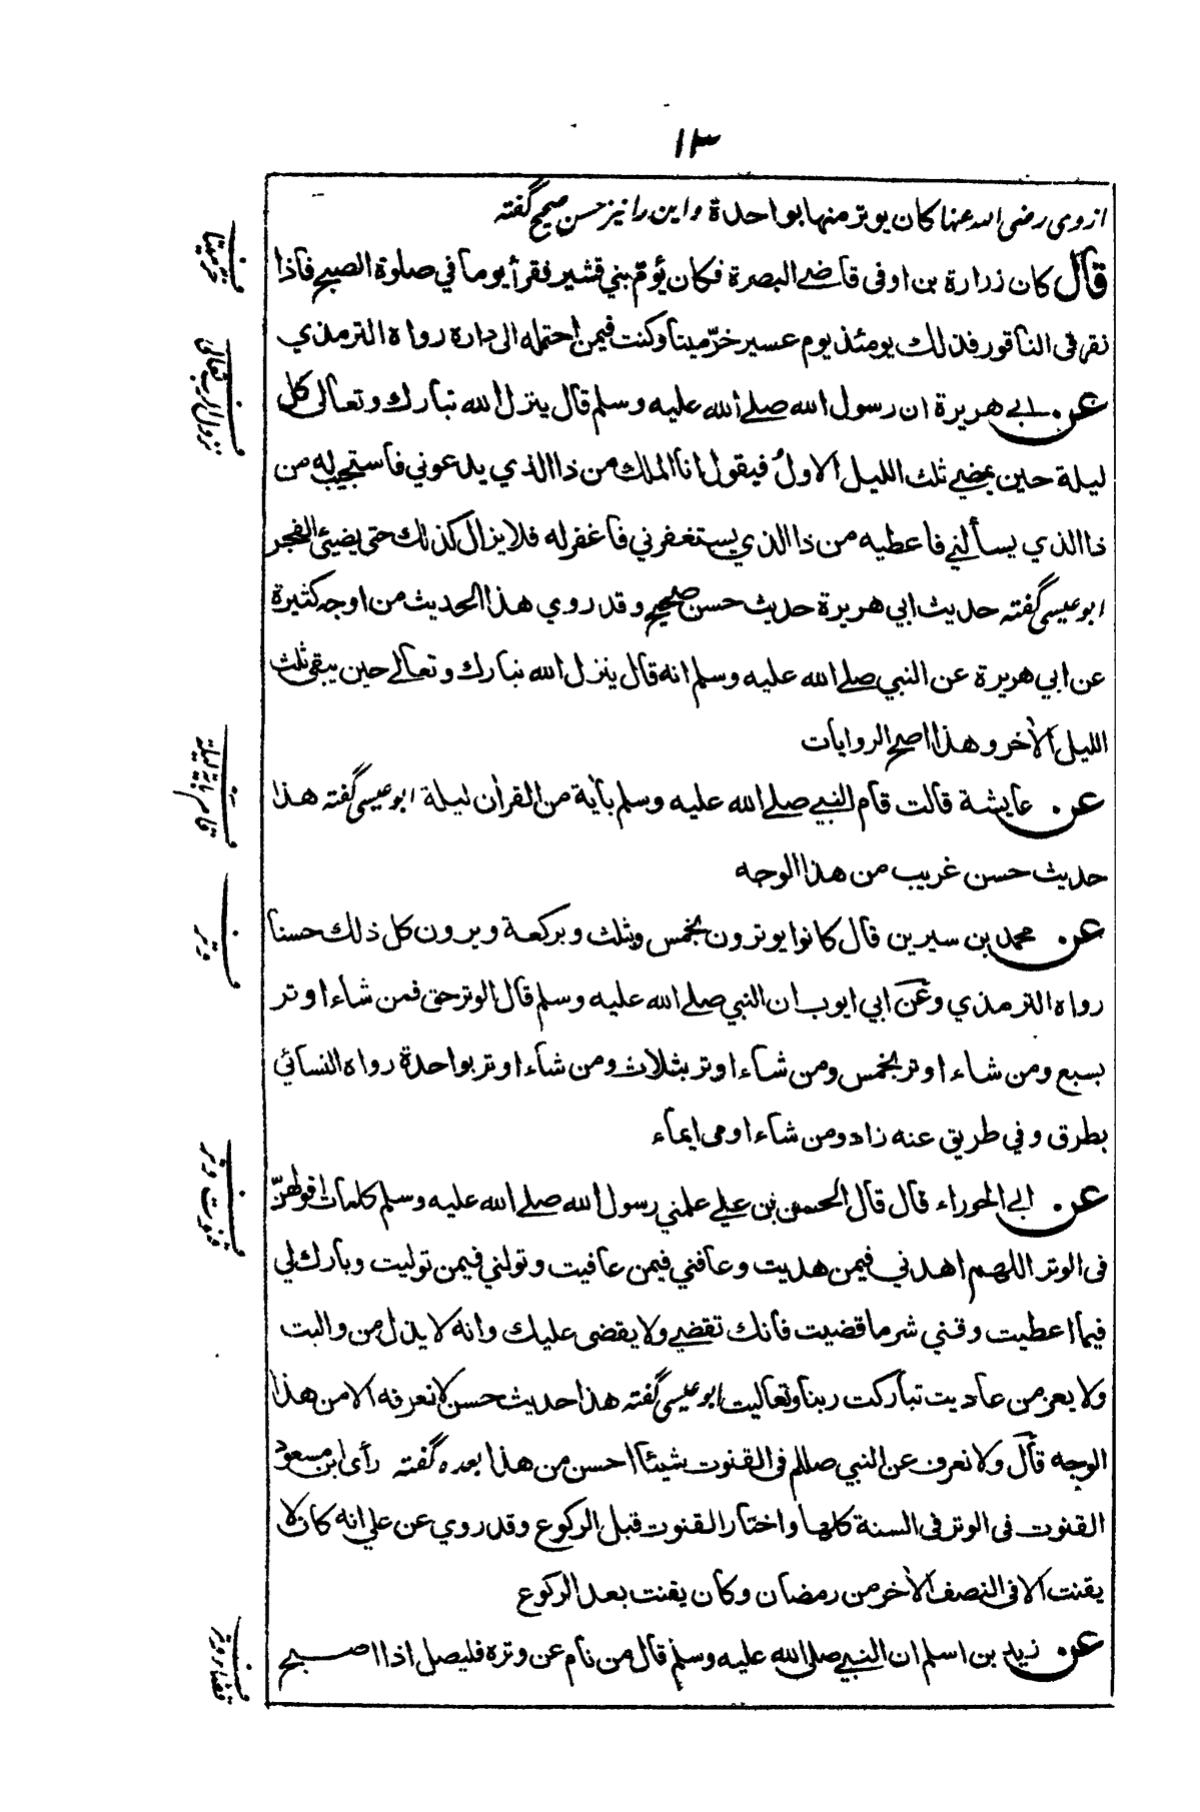 ۱۳
از وی رضی الله عنها کان یوتر منها بواحدة و این را نیز حسن صحیح گفته
قال کان زرارة بن اوفی قاضے البصرة فکان یؤمّ بني قشیر فقرأ یوما في صلوة الصبح فاذا
نقر فی الناقور فذلك یومئذ یوم عسیر خرّ میتا وکنت فیمن احتمله الی داره رواه الترمذي
عن ابے هریرة ان رسول الله صلے الله علیه وسلم قال ینزل الله تبارك وتعالی کل
لیلة حین یمضے ثلث اللیل الاول فیقول انا الملك من ذا الذي یدعوني فاستجیب له من
ذا الذي یسألنے فاعطیه من ذا الذي یستغفرني فاغفر له فلا یزال کذلك حتی یضیئ الفجر
ابو عیسی گفته حدیث ابي هریرة حدیث حسن صحیح وقد روي هذا الحدیث من اوجه کثیرة
عن ابي هریرة عن النبي صلے الله علیه وسلم انه قال ینزل الله تبارك وتعالے حین یبقی ثلث
اللیل الأخر وهذا اصح الروایات
عن عایشة قالت قام النبے صلے الله علیه وسلم بأیة من القرأن لیلة ابو عیسی گفته هذا
حدیث حسن غریب من هذا الوجه
عن محمد بن سیرین قال کانوا یوترون بخمس وبثلث وبرکعة ویرون کل ذلك حسنا
رواه الترمذي وعن ابي ایوب ان النبي صلے الله علیه وسلم قال الوتر حق فمن شاء اوتر
بسبع ومن شاء اوتر بخمس ومن شاء اوتر بثلاث ومن شاء اوتر بواحدة رواه النسائي
بطرق وفي طریق عنه زاد ومن شاء اومی ایماء
عن ابے الحوراء قال قال الحسن بن علے علمني رسول الله صلے الله علیه وسلم کلمات اقولهنّ
فی الوتر اللهم اهدني فیمن هدیت وعافني فیمن عافیت وتولني فیمن تولیت وبارك لي
فیما اعطیت وقني شر ما قضیت فانك تقضے ولا یقضی علیك وانه لا یذل من والیت
ولا یعز من عادیت تبارکت ربنا وتعالیت ابو عیسی گفته هذا حدیث حسن لا نعرفه الا من هذا
الوجه قال ولا نعرف عن النبي صللم فی القنوت شیئا احسن من هذا بعده گفته رأی ابن مسعود
القنوت فی الوتر فی السنة کلها واختار القنوت قبل الرکوع وقد روي عن علي انه کان لا
یقنت الا فی النصف الأخر من رمضان وکان یقنت بعد الرکوع
عن زید بن اسلم ان النبے صلی الله علیه وسلم قال من نام عن وتره فلیصل اذا اصبح
ف نزول رب تعالی
ف قام بایة لیلة
ف وتر
ف قنوت وتر
ف قضاء وتر